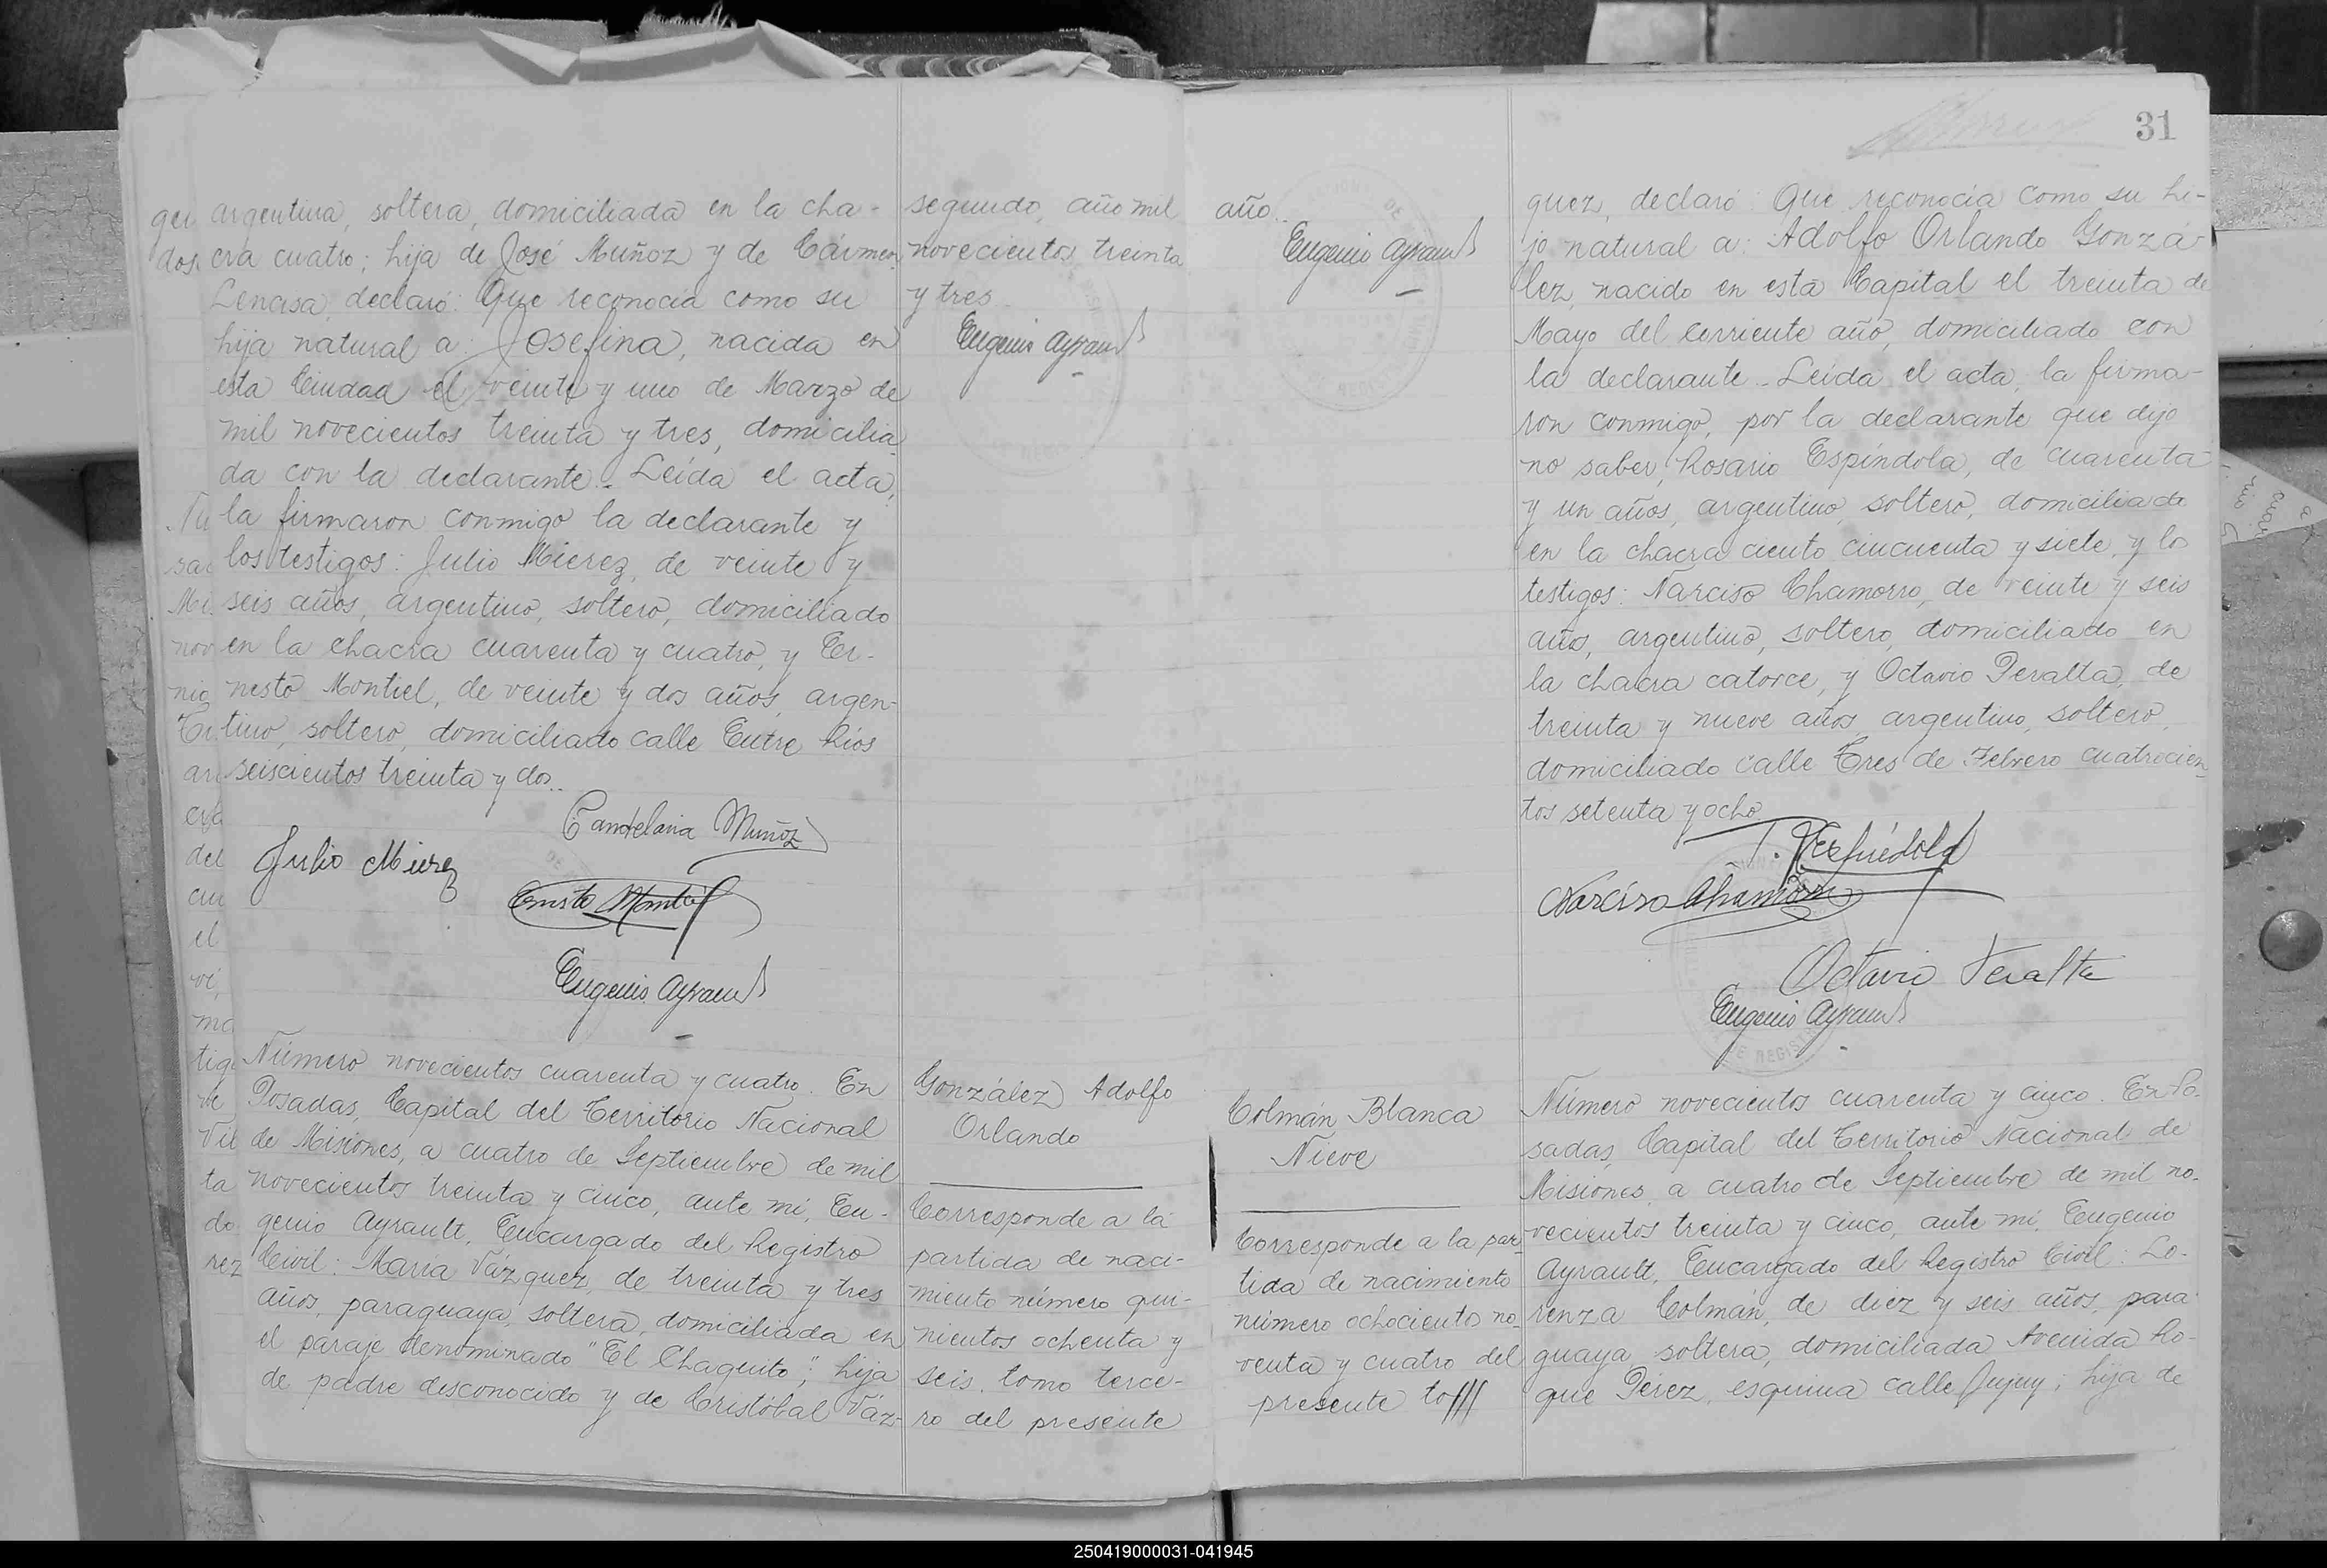 argentina, soltera, domiciliada en la cha-
cra cuatro; hija de José Muñoz y de Cármen
declaró: Que reconocía como su
hija natural a: Josefina, nacida en
esta Ciudad el veinte y uno de Marzo de
mil novecientos treinta y tres, domicilia-
da con la declarante.- Leída el acta,
la firmaron conmigo la declarante y
los testigos: Julio Mierez, de veinte y
seis años, argentino, soltero, domiciliado
en la chacra cuarenta y cuatro, y Er-
nesto Montiel, de veinte y dos años, argen-
tino, soltero, domiciliado calle Entre Ríos
seiscientos treinta y dos..
Candelaria Muñoz
Julio Mierez
Ernesto Montiel
Eugenio Ayrault
segundo, año mil
novecientos treinta
y tres
Eugenio Ayrault
Número novecientos cuarenta y cuatro. En
Posadas, Capital del Territorio Nacional
de Misiones, a cuatro de Septiembre de mil
novecientos treinta y cinco, ante mí, Eu-
genio Ayrault, Encargado del Registro
Civil: María Vázquez, de treinta y tres
años, paraguaya, soltera, domiciliada en
el paraje denominado "El Chaquito"; hija
de padre desconocido y de Cristóbal Váz-
González Adolfo
Orlando
Corresponde a la
partida de naci-
miento número qui-
nientos ochenta y
seis, tomo terce-
ro del presente
31
año..
Eugenio Ayrault
quez, declaró: Que reconocía como su hi-
jo natural a: Adolfo Orlando Gonzá-
lez, nacido en esta Capital el treinta de
Mayo del corriente año, domiciliado con
la declarante.- Leída el acta, la firma-
ron conmigo, por la declarante que dijo
no saber, Rosario Espíndola, de cuarenta
y un años, argentino, soltero, domiciliado
en la chacra ciento cincuenta y siete, y los
testigos: Narciso Chamorro, de veinte y seis
años, argentino, soltero, domiciliado en
la chacra catorce, y Octavio Peralta, de
treinta y nueve años, argentino, soltero,
domiciliado calle Tres de Febrero cuatrocien-
tos setenta y ocho
Narciso Chamorro
Octavio Peralta
Eugenio Ayrault
Colmán Blanca
Nieve
Corresponde a la par-
tida de nacimiento
número ochocientos no-
venta y cuatro del
presente to///
Número novecientos cuarenta y cinco. En Po-
sadas, Capital del Territorio Nacional de
Misiones, a cuatro de Septiembre de mil no-
vecientos treinta y cinco, ante mí, Eugenio
Ayrault, Encargado del Registro Civil: Lo-
renza Colmán, de diez y seis años, para-
guaya, soltera, domiciliada Avenida Ro-
que Pérez, esquina calle Jujuy; hija de
250419000031-041945